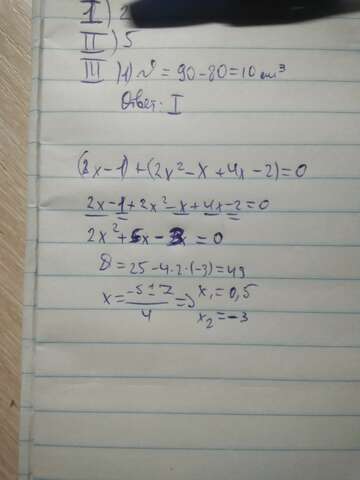 I) 2
II) 5
III) 1) V = 90-80=10 см³
Ответ: I
(2x-1)+(2x²-x+4x-2)=0
2x-1+2x²-x+4x-2=0
2x²+5x-3=0
D=25-4·2·(-3)=49
x=(-5±7)/4 => x₁=0,5
x₂=-3